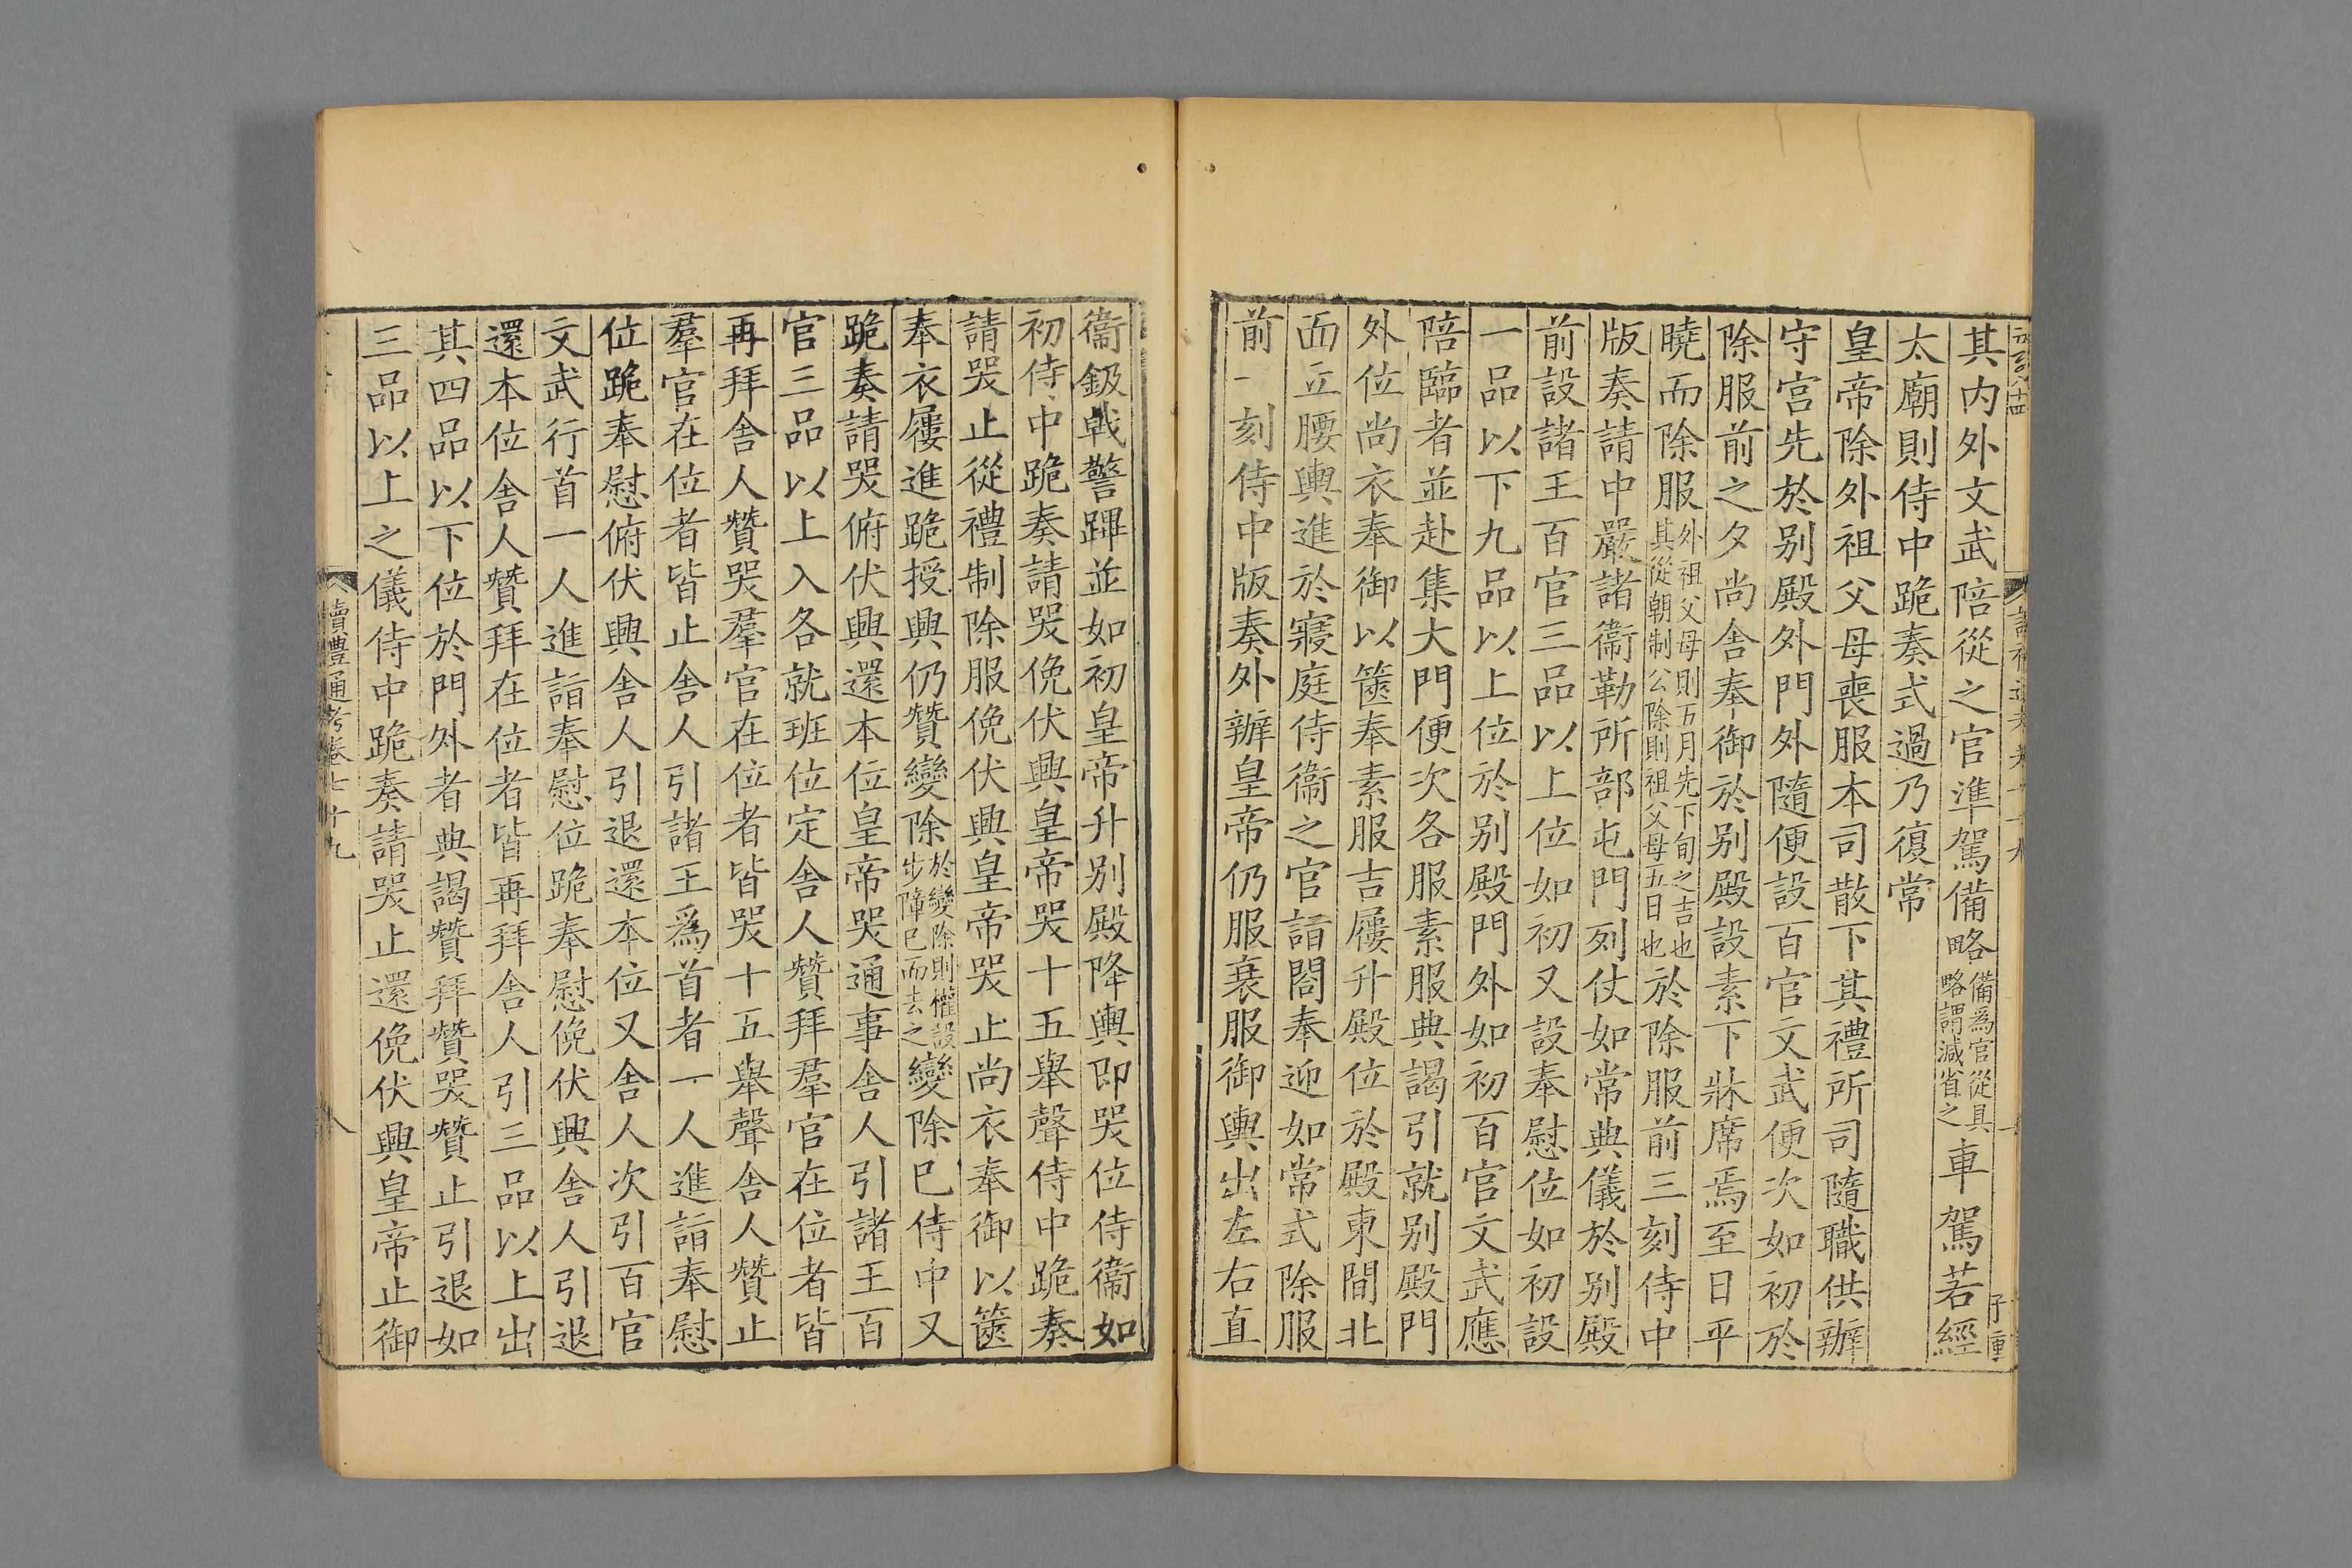 其内外文武陪從之官準駕備略備爲官從具略謂減省之車駕若經
太廟則侍中跪奏式過乃復常
皇帝除外祖父母喪服本司散下其禮所司隨職供辦
守宮先於别殿外門外隨便設百官文武便次如初於
除服前之夕尚舍奉御於别殿設素下牀席焉至日平
曉而除服外祖父母則五月先下旬之吉也其從朝制公除則祖父母五日也於除服前三刻侍中
版奏請中嚴諸衞勒所部屯門列仗如常典儀於别殿
前設諸王百官三品以上位如初又設奉慰位如初設
一品以下九品以上位於别殿門外如初百官文武應
陪臨者並赴集大門便次各服素服典謁引就别殿門
外位尚衣奉御以篋奉素服吉屨升殿位於殿東間北
面立腰輿進於寢庭侍衞之官詣閤奉迎如常式除服
前一刻侍中版奏外辦皇帝仍服衰服御輿出左右直
衞鈒戟警蹕並如初皇帝升别殿降輿即哭位侍衞如
初侍中跪奏請哭俛伏興皇帝哭十五舉聲侍中跪奏
請哭止從禮制除服俛伏興皇帝哭止尚衣奉御以篋
奉衣屨進跪授興仍贊變除於變除則權設步障已而去之變除已侍中又
跪奏請哭俯伏興還本位皇帝哭通事舍人引諸王百
官三品以上入各就班位定舍人贊拜羣官在位者皆
再拜舍人贊哭羣官在位者皆哭十五舉聲舍人贊止
羣官在位者皆止舍人引諸王爲首者一人進詣奉慰
位跪奉慰俯伏興舍人引退還本位又舍人次引百官
文武行首一人進詣奉慰位跪奉慰俛伏興舍人引退
還本位舍人贊拜在位者皆再拜舍人引三品以上出
其四品以下位於門外者典謁贊拜贊哭贊止引退如
三品以上之儀侍中跪奏請哭止還俛伏興皇帝止御
讀禮通考卷七十九
八